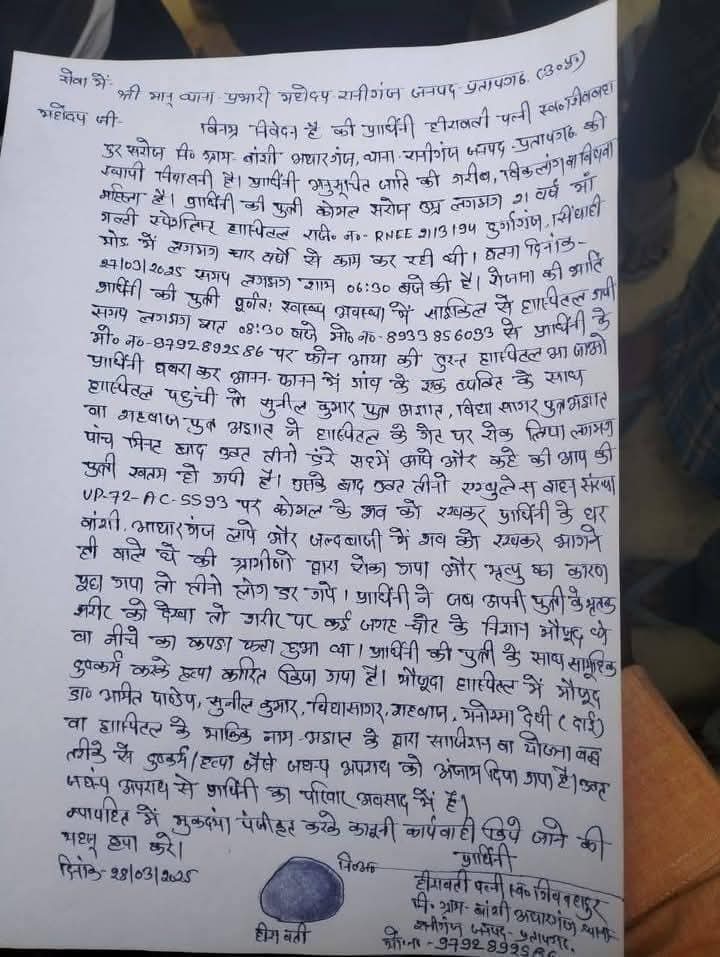 सेवा में-
श्री मान् थाना प्रभारी महोदय रानीगंज जनपद-प्रतापगढ़. (उ०प्र०)
महोदय जी-
विनम्र निवेदन है की प्रार्थिनी हीरावती पत्नी स्व० शिवबहा
दुर सरोज नि० ग्राम- बांशी अधारगंज, थाना- रानीगंज जनपद-प्रतापगढ़ की
स्थायी निवासनी है। प्रार्थिनी अनुसूचित जाति की गरीब, विकलांग वा विधवा
महिला है। प्रार्थिनी की पुत्री कोमल सरोज उम्र लगभग 21 वर्ष माँ
मल्टी स्पेशलिस्ट हास्पिटल राजि० न०- RNEE 2113194 दुर्गागंज, सिंघाही
मोड में लगभग चार वर्षो से काम कर रही थी। घटना दिनांक-
27/03/2025 समय लगभग शाम 06:30 बजे की है। रोजाना की भाति
प्रार्थिनी की पुत्री पूर्णतः स्वास्थ्य अवस्था में साइकिल से हास्पिटल गयी
समय लगभग रात 08:30 बजे मो० न०-8933856093 से प्रार्थिनी के
मो० न०-9792899586 पर फोन आया की तुरन्त हास्पिटल आ जाओ
प्रार्थिनी घबरा कर आनन-फानन में गांव के एक व्यक्ति के साथ
हास्पिटल पहुंची तो सुनील कुमार पुत्र अज्ञात, विद्या सागर पुत्र अज्ञात
वा शहबाज पुत्र अज्ञात ने हास्पिटल के गेट पर रोक लिया लगभग
पांच मिनट बाद उक्त तीनो डरे सहमें आये और कहे की आप की
पुत्री खतम हो गयी है। इसके बाद उक्त तीनो एम्बुलेन्स वाहन संख्या
UP-72-AC-5593 पर कोमल के शव को रखकर प्रार्थिनी के घर
बांशी, आधारगंज लाये और जल्दबाजी में शव को रखकर भागने
ही वाले थे की ग्रामीणो द्वारा रोका गया और मृत्यु का कारण
पूछा गया तो तीनो लोग डर गये। प्रार्थिनी ने जब अपनी पुत्री के मृतक
शरीर को देखा तो शरीर पर कई जगह चोट के निशान मौजूद थे
वा नीचे का कपडा फटा हुआ था। प्रार्थिनी की पुत्री के साथ सामूहिक
दुष्कर्म करके हत्या कारित किया गया है। मौजूदा हास्पिटल में मौजूद
डा० अमित पाण्डेय, सुनील कुमार, विद्यासागर, शहबाज, मनोरमा देवी (दाई)
वा हास्पिटल के मालिक नाम-अज्ञात के द्वारा साजिशन वा योजना बद्ध
तरीके से दुष्कर्म/हत्या जैसे जघन्य अपराध को अंजाम दिया गया है। उक्त
जघन्य अपराध से प्रार्थिनी का परिवार अवसाद में है।
न्यायहित में मुकदमा पंजीकृत करके कानूनी कार्यवाही किये जाने की
महान् कृपा करे।
दिनांक-28/03/2025
हीरावती
नि०अ०
प्रार्थिनी
हीरावती पत्नी स्व० शिवबहादुर
नि० ग्राम-बांशी अधारगंज थाना-
रानीगंज जनपद-प्रतापगढ़.
मो० न०-9792899586